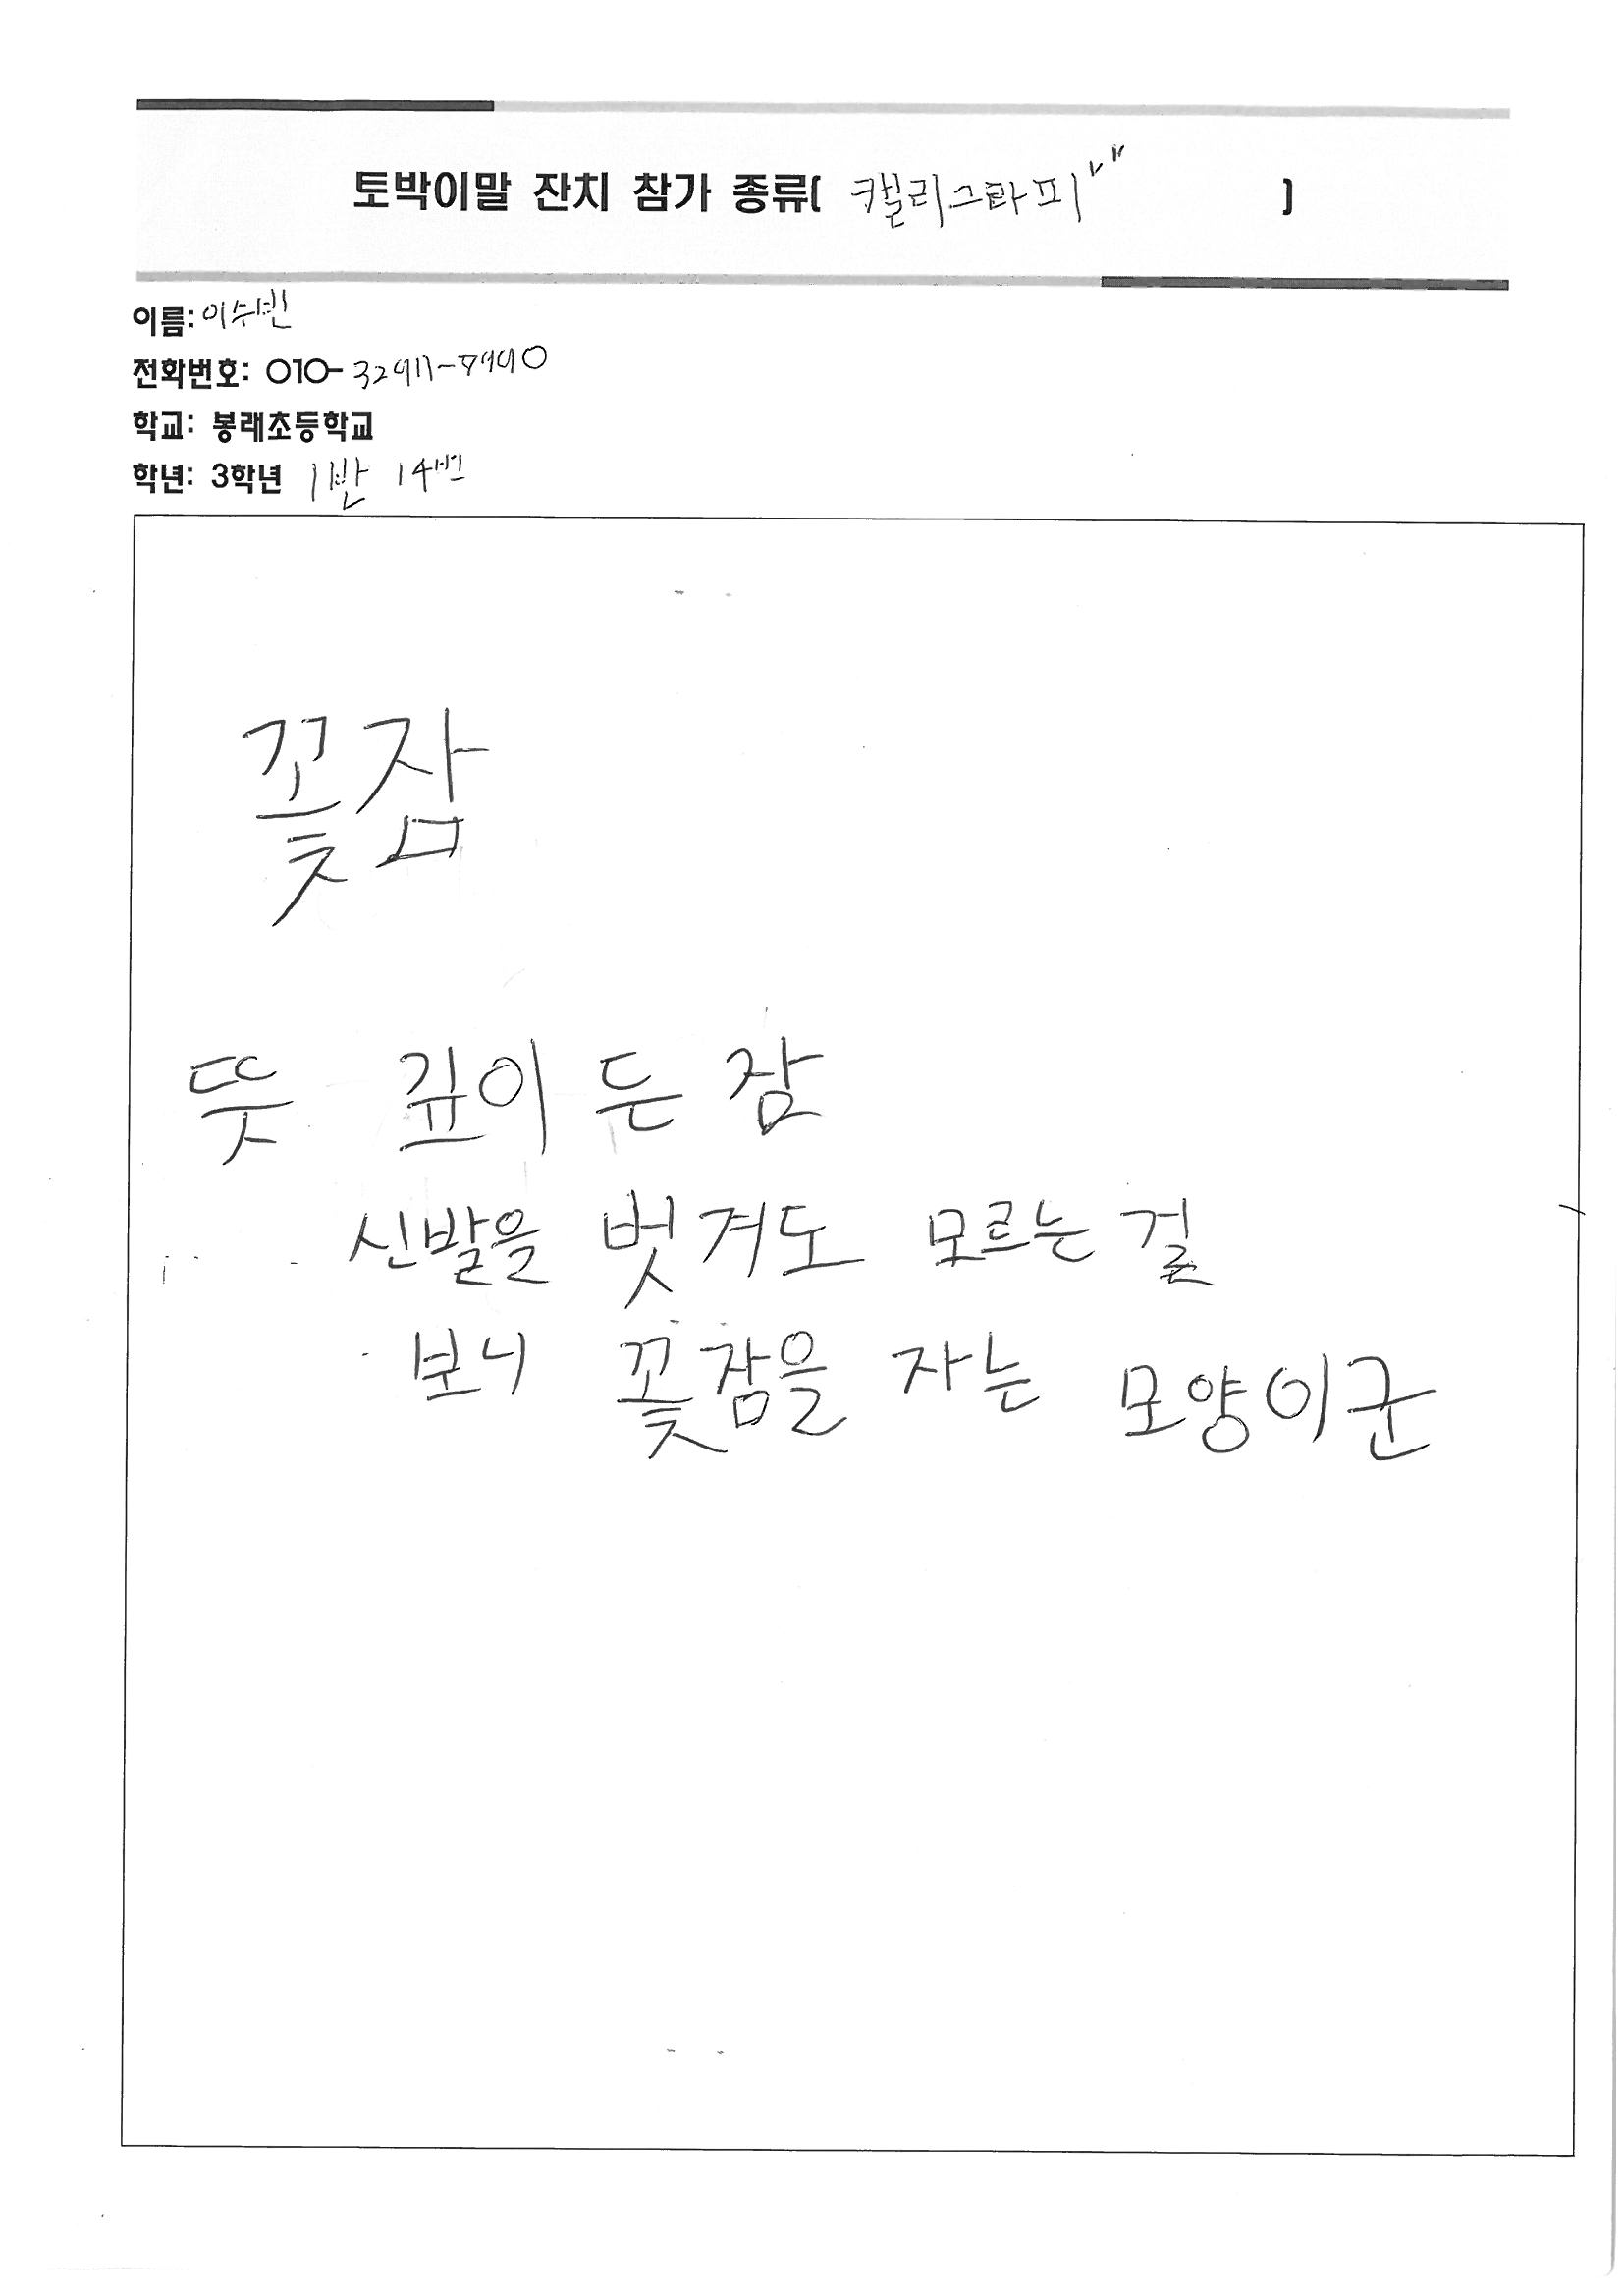 토박이말 잔치 참가 종류( 캘리그라피 )
이름: 이수빈
전화번호: 010-
학교: 봉래초등학교
학년: 3학년 1반 14번
꽃잠
뜻 깊이 든 잠
신발을 벗겨도 모르는 걸
보니 꽃잠을 자는 모양이군